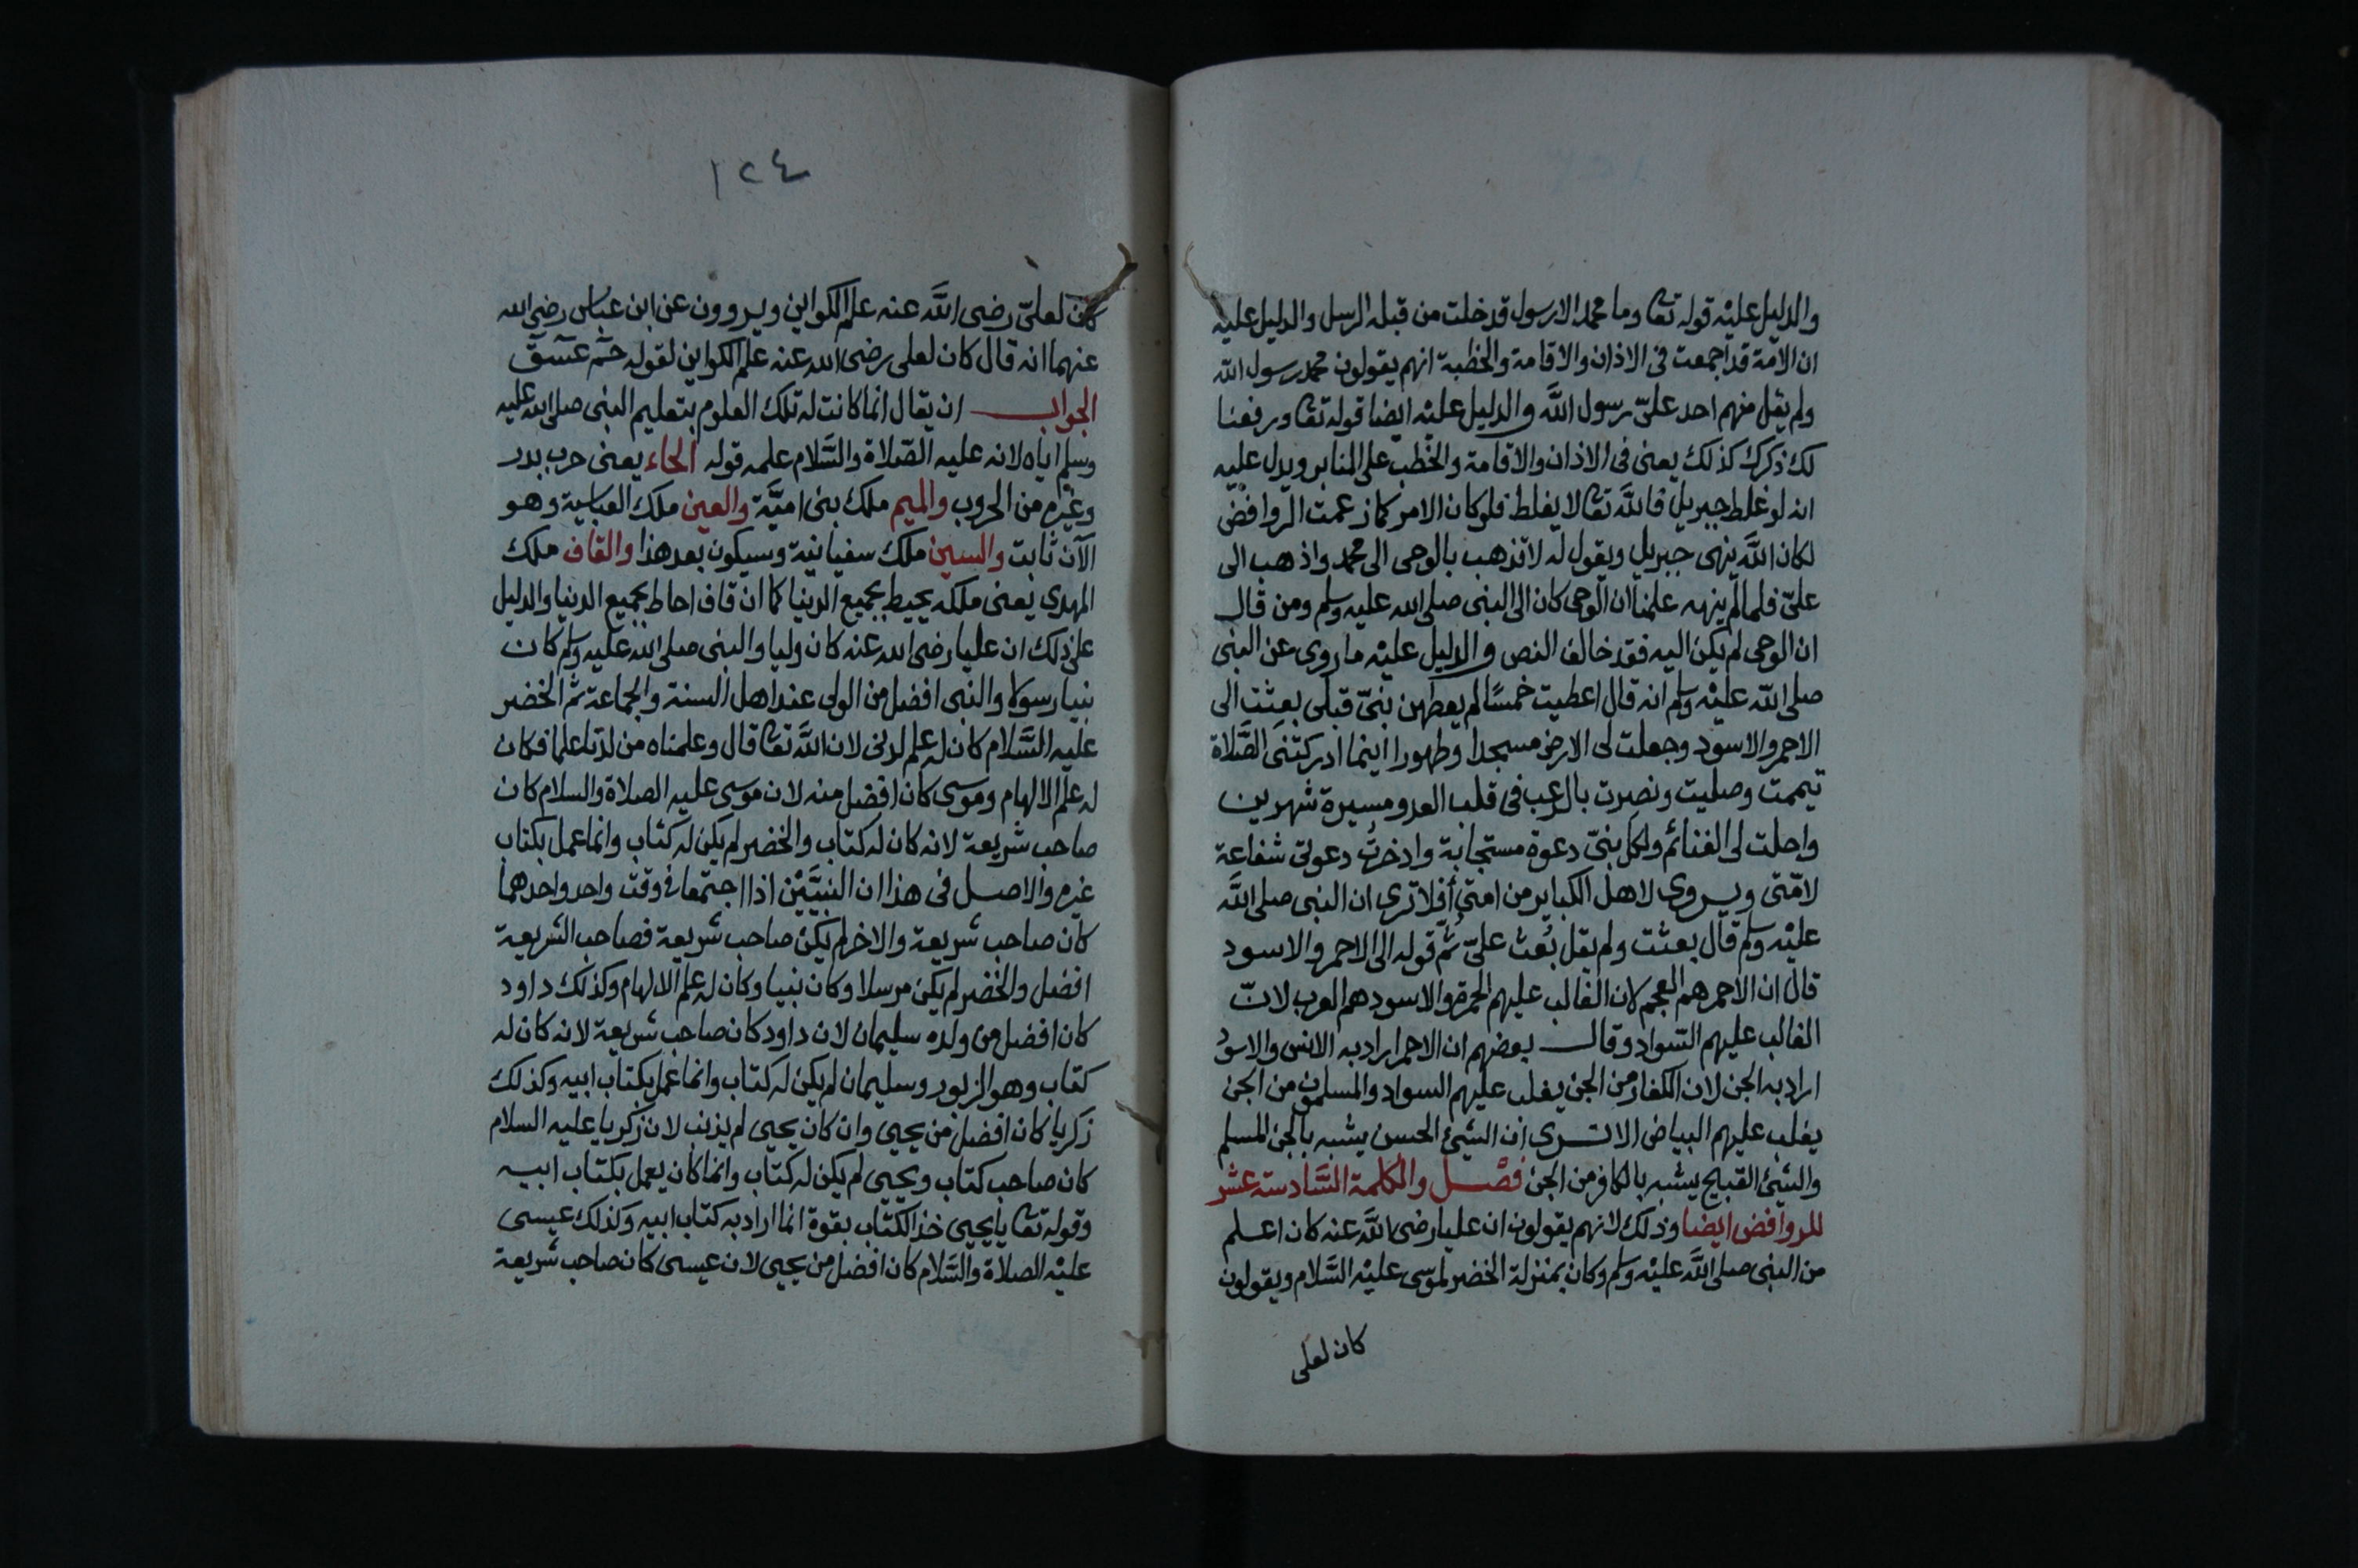 والدليل عليه قوله تعا وما محمد الا رسول قد خلت من قبله الرسل والدليل عليه
ان الامة قد اجمعت فى الاذان والاقامة والخطبة انهم يقولون محمد رسول الله
ولم يقل منهم احد علىّ رسول الله والدليل عليه ايضا قوله تعا ورفعنا
لك ذكرك كذلك يعنى فى الاذان والاقامة والخطب على المنابر ويدل عليه
انه لو غلط جبريل فالله تعا لا يغلط فلو كان الامر كما زعمت الروافض
لكان الله ينهى جبريل ويقول له لا تذهب بالوحى الى محمد واذهب الى
علىّ فلما لم ينهه علمنا ان الوحى كان الى النبى صلى الله عليه وسلم ومن قال
ان الوحى لم يكن اليه فقد خالف النص والدليل عليه ما روى عن النبى
صلى الله عليه وسلم انه قال اعطيت خمسًا لم يعطهن نبىّ قبلى بعثت الى
الاحمر والاسود وجعلت لى الارض مسجدا وطهورا اينما ادركتنى الصَّلاة
تيممت وصليت ونصرت بالرعب فى قلب العدو مسيرة شهرين
واحلت لى الغنائم ولكل نبىّ دعوة مستجابة وادخرتُ دعوتى شفاعة
لامّتى ويروى لاهل الكباير من امتى أفلا ترى ان النبى صلى الله
عليه وسلم قال بعثت ولم يقل بُعث علىّ ثُمّ قوله الى الاحمر والاسود
قال ان الاحمر هم العجم لان الغالب عليهم الحمرة والاسود هم العرب لانّ
الغالب عليهم السّواد وقال بعضهم ان الاحمر اراد به الانس والاسود
اراد به الجن لان الكفار من الجن يغلب عليهم السواد والمسلمون من الجن
يغلب عليهم البياض الا ترى ان الشئ الحسن يشبه بالجن المسلم
والشئ القبيح يشبه بالكافر من الجن فصْل والكلمة السَّادسة عشر
للروافض ايضا وذلك لانهم يقولون ان عليا رضى الله عنه كان اعلم
من النبى صلى الله عليه وسلم وكان بمنزلة الخضر لموسى عليه السَّلام ويقولون
كان لعلى
١٢٤
كان لعلىّ رضى الله عنه علم الكواين ويروون عن ابن عباس رضى الله
عنهما انه قال كان لعلى رضى الله عنه علم الكواين لقوله حٓمٓ عٓسٓقٓ
الجواب ان يقال انما كانت له تلك العلوم بتعليم النبى صلى الله عليه
وسلم اياه لانه عليه الصّلاة والسَّلام علمه قوله الحاء يعنى حرب بدر
وغيره من الحروب والميم ملك بنى اميَّة والعين ملك العباسية وهو
الآن ثابت والسين ملك سفيانية وسيكون بعد هذا والقاف ملك
المهدى يعنى ملكه يحيط بجميع الدنيا كما ان قاف احاط بجميع الدنيا والدليل
على ذلك ان عليا رضى الله عنه كان وليا والنبى صلى الله عليه وسلم كان
نبيا رسولا والنبى افضل من الولى عند اهل السنة والجماعة ثم الخضر
عليه السَّلام كان له علم لدنى لان الله تعا قال وعلمناه من لدنا علما فكان
له علم الالهام وموسى كان افضل منه لان موسى عليه الصلاة والسلام كان
صاحب شريعة لانه كان له كتاب والخضر لم يكن له كتاب وانما عمل بكتاب
غيره والاصل فى هذا ان النبيَّيْن اذا اجتمعا فى وقت واحد واحدهما
كان صاحب شريعة والاخر لم يكن صاحب شريعة فصاحب الشريعة
افضل والخضر لم يكن مرسلا وكان نبيا وكان له علم الالهام وكذلك داود
كان افضل من ولده سليمان لان داود كان صاحب شريعة لانه كان له
كتاب وهو الزبور وسليمان لم يكن له كتاب وانما عمل بكتاب ابيه وكذلك
زكريا كان افضل من يحيى وان كان يحيى لم يذنب لان زكريا عليه السلام
كان صاحب كتاب ويحيى لم يكن له كتاب وانما كان يعمل بكتاب ابيه
وقوله تعا يا يحيى خذ الكتاب بقوة انما اراد به كتاب ابيه وكذلك عيسى
عليه الصلاة والسَّلام كان افضل من يحيى لان عيسى كان صاحب شريعة